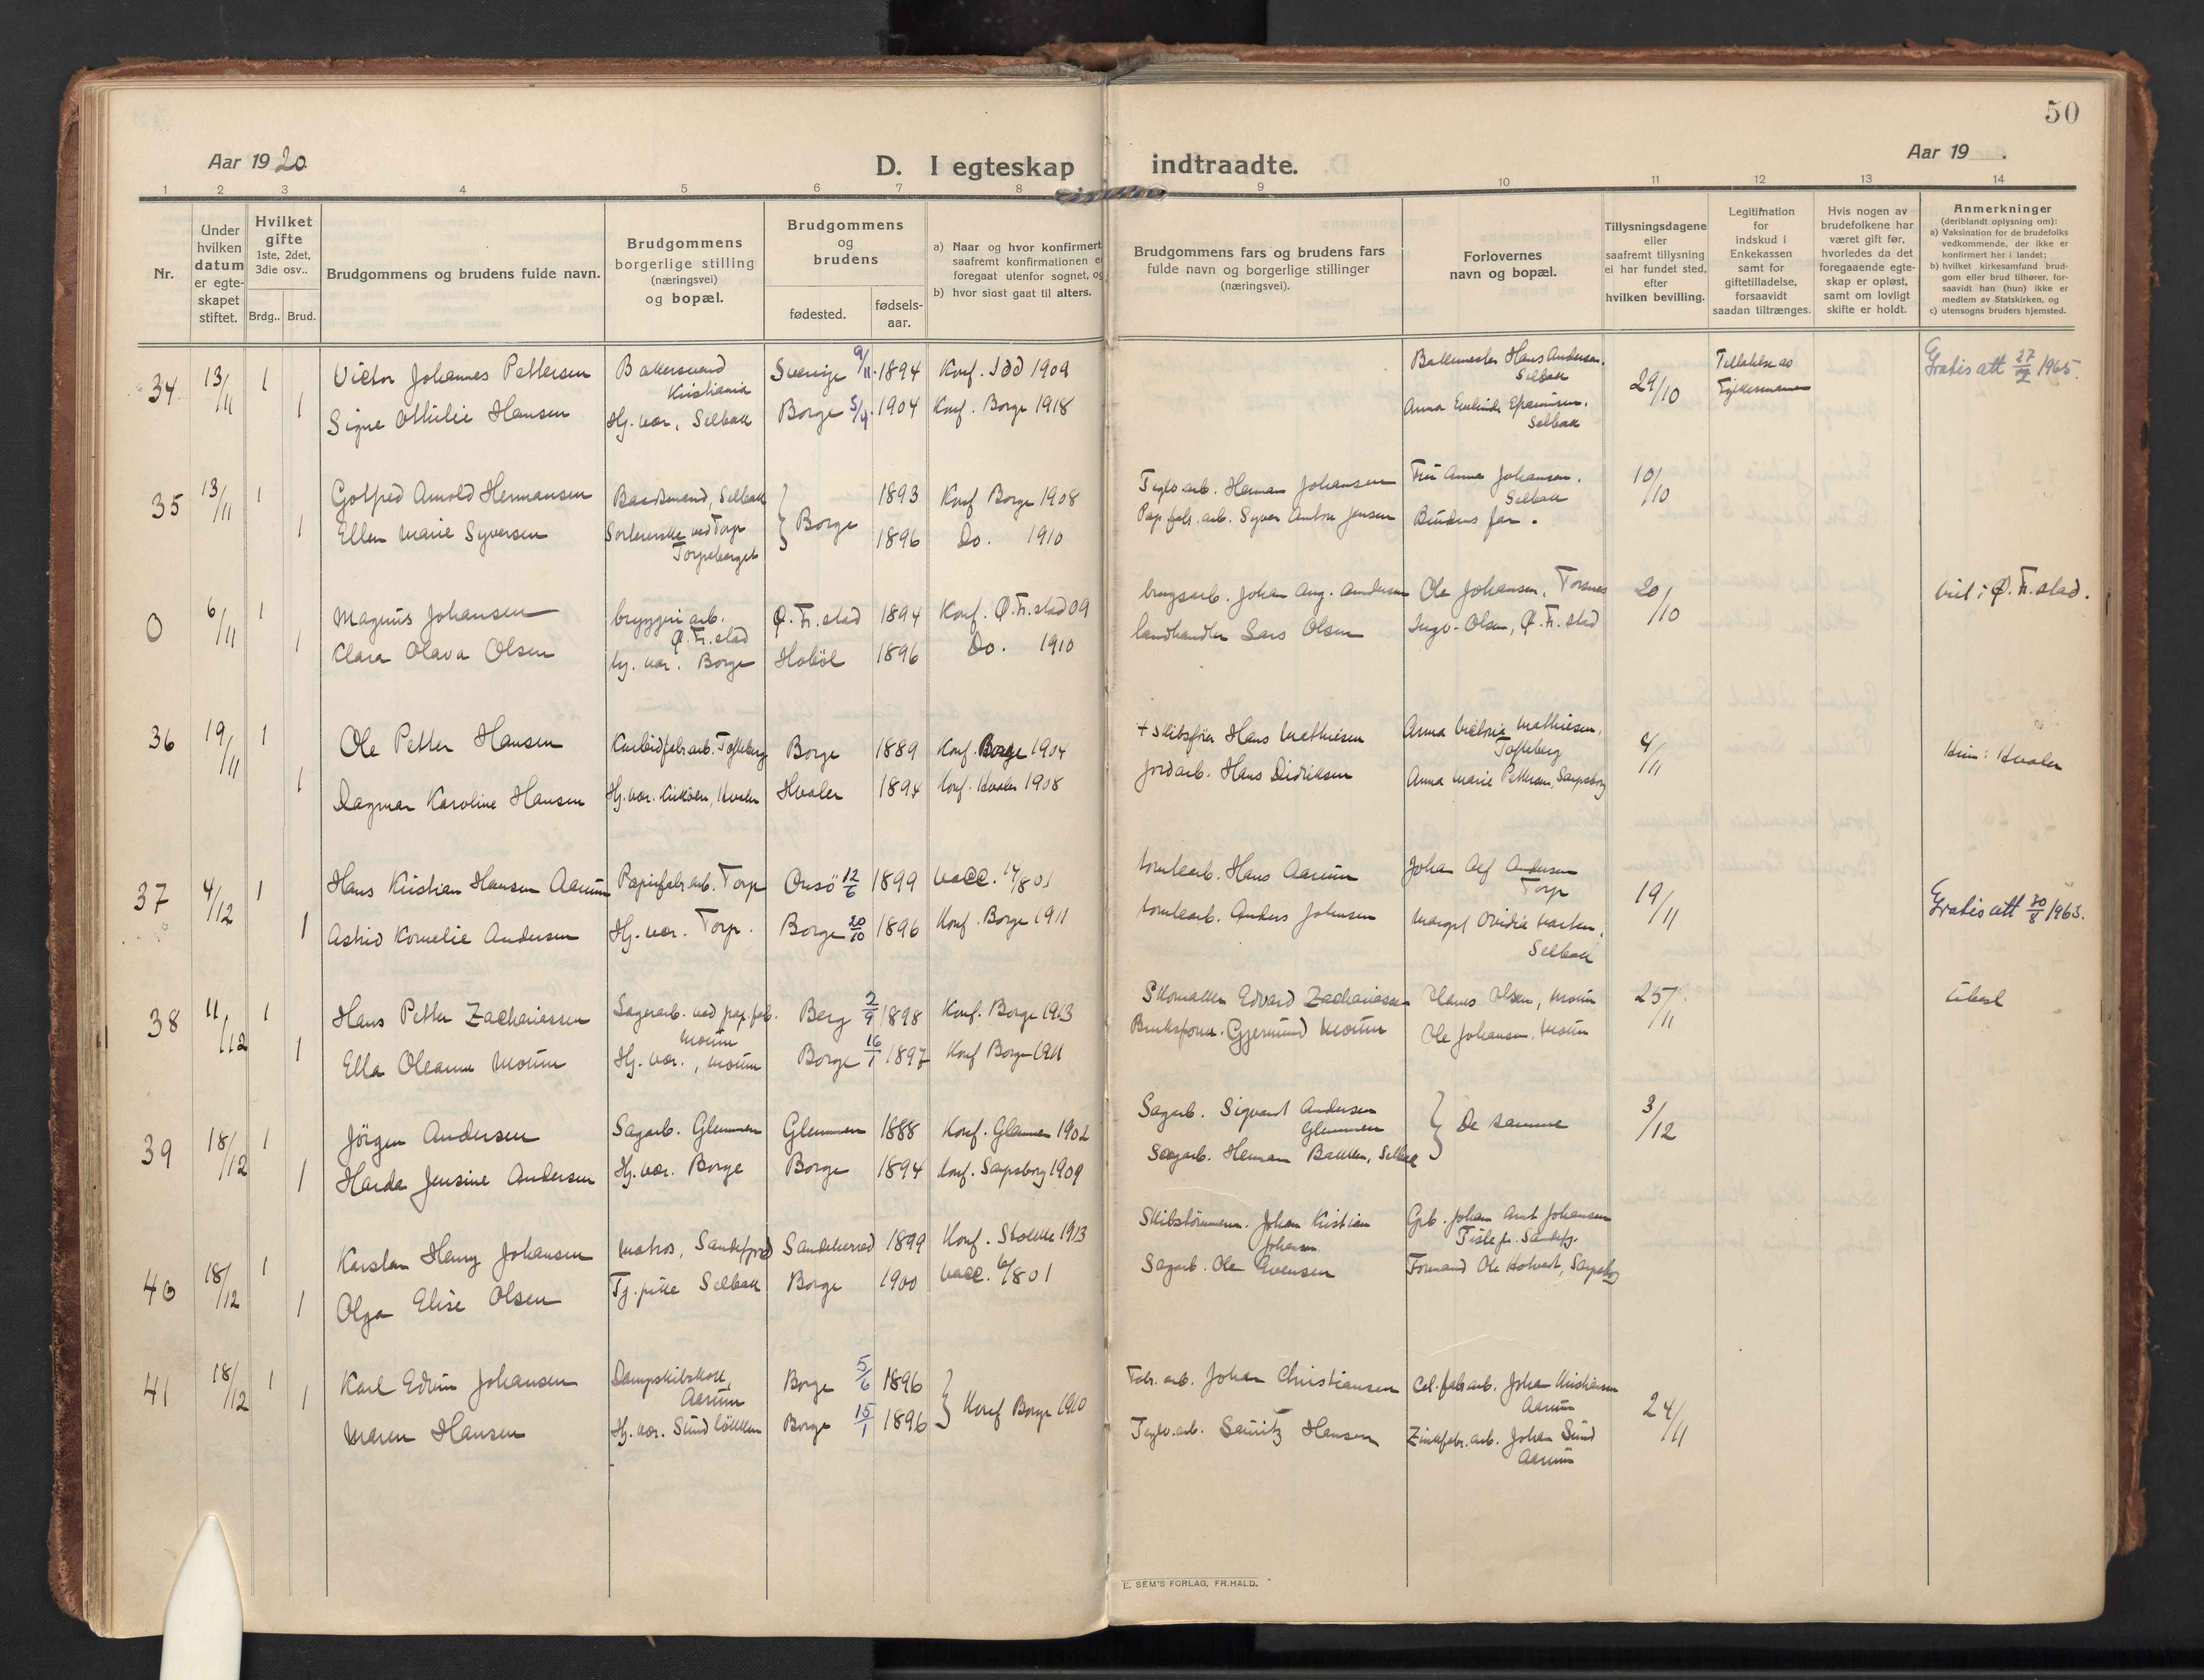 50
Aar 1920
D. I egteskap indtraadte.
Aar 19 .
1 2 3 4 5 6 7 8 9 10 11 12 13 14
Nr.
Under hvilken datum er egteskapet stiftet.
Hvilket gifte 1ste, 2det, 3die osv..
Brdg.. Brud.
Brudgommens og brudens fulde navn.
Brudgommens borgerlige stilling (næringsvei) og bopæl.
Brudgommens og brudens
fødested.
fødsels-aar.
a) Naar og hvor konfirmert saafremt konfirmationen er foregaat utenfor sognet, og
b) hvor sidst gaat til alters.
Brudgommens fars og brudens fars fulde navn og borgerlige stillinger (næringsvei).
Forlovernes navn og bopæl.
Tillysningsdagene eller saafremt tillysning ei har fundet sted, efter hvilken bevilling.
Legitimation for indskud i Enkekassen samt for giftetilladelse, forsaavidt saadan tiltrænges.
Hvis nogen av brudefolkene har været gift før, hvorledes da det foregaaende egteskap er opløst, samt om lovligt skifte er holdt.
Anmerkninger
(deriblandt oplysning om):
a) Vaksination for de brudefolks vedkommende, der ikke er konfirmert her i landet;
b) hvilket kirkesamfund brudgom eller brud tilhører, forsaavidt han (hun) ikke er medlem av Statskirken, og
c) utensogns bruders hjemsted.
34 13/11 1 Victor Johannes Pettersen Kristiania Sverige 9/11 1894 Konf. Idd 1909 Hans Andersen, Selbak 29/10 Gratis att 27/2 1965.
1 Signe Othilie Hansen Hj. vær, Selbak Borge 5/4 1904 Konf. Borge 1918 Anna Selbak
35 13/11 1 Gotfred Arnold Hermansen Baadsmand, Selbak 1893 Konf Borge 1908 Teglv arb. Herman Johansen Fru Anna Johansen, Selbak 10/10
1 Ellen Marie Syversen Sorterske ved Torp Torpeberget } Borge 1896 Do. 1910 Pap.fabr.arb. Syver Anton Jensen Brudens far.
0 6/11 1 Magnus Johansen bryggeriarb. Ø. Fr. stad Ø. Fr. stad 1894 Konf. Ø. Fr. stad 09 brugsarb. Johan Aug. Andersen Ole Johansen, Torsnes 20/10 viet i Ø. Fr. stad.
1 Klara Olava Olsen hj. vær. Borge Hobøl 1896 Do. 1910 landhandler Lars Olsen Ingv. Olsen, Ø. Fr. stad
36 19/11 1 Ole Petter Hansen Karbidfabr.arb. Tofteberg Borge 1889 Konf. Borge 1904 + Skibsfører Hans Mathiesen Anna Mathiesen, Tofteberg 4/11 Hvaler
1 Dagmar Karoline Hansen Hj. vær. Kirkøen, Hvaler Hvaler 1894 Konf. Hvaler 1908 Jordarb. Hans Didriksen Anna Marie Pettersen, Sarpsborg
37 4/12 1 Hans Kristian Hansen Aarum Papirfabr.arb. Torp Onsø 12/6 1899 vacc. 14/8 01 tomtearb. Hans Aarum Johan Alf Andersen Torp 19/11 Gratis att 30/8 1963.
1 Astrid Kornelie Andersen Hj. vær. Torp. Borge 20/10 1896 Konf. Borge 1911 tomtearb. Anders Johnsen Margit Ovidia Selbak
38 11/12 1 Hans Petter Zachariassen Lagerarb. ved pap.fab. Moum Berg 2/9 1898 Konf. Borge 1913 Skomaker Edvard Zachariassen Olsen, Moum 25/11
1 Ella Oleanna Moum Hj. vær., Moum Borge 16/1 1897 Konf Borge 1911 Gjermund Moum Ole Johansen, Moum
39 18/12 1 Jörgen Andersen Sagarb. Glemmen Glemmen 1888 Konf. Glemmen 1902 Sagarb. Sigvart Andersen Glemmen } De samme 3/12
1 Harda Jensine Andersen Hj. vær. Borge Borge 1894 Konf. Sarpsborg 1909 Sagarb. Herman Bakken, Selbak
40 18/12 1 Karsten Henry Johansen Matros, Sandefjord Sandeherred 1899 Konf. Stokke 1913 Skibstömmerm. Johan Kristian Johansen Johan Arnt Johansen
1 Olga Elise Olsen Tj. pike Selbak Borge 1900 vacc. 6/8 01 Sagarb. Ole Evensen Formand Ole Holvedt, Sarpsborg
41 18/12 1 Karl Edvin Johansen Dampskibskok, Aarum Borge 5/6 1896 } Konf Borge 1910 Fabr. arb. Johan Christiansen Cel. fabr.arb. Johan Kristiansen Aarum 24/11
1 Maren Hansen Hj. vær. Sundløkken Borge 15/1 1896 Teglv.arb. Hansen Zinkfabr.arb. Johan Sund Aarum
E. SEM'S FORLAG, FR.HALD.